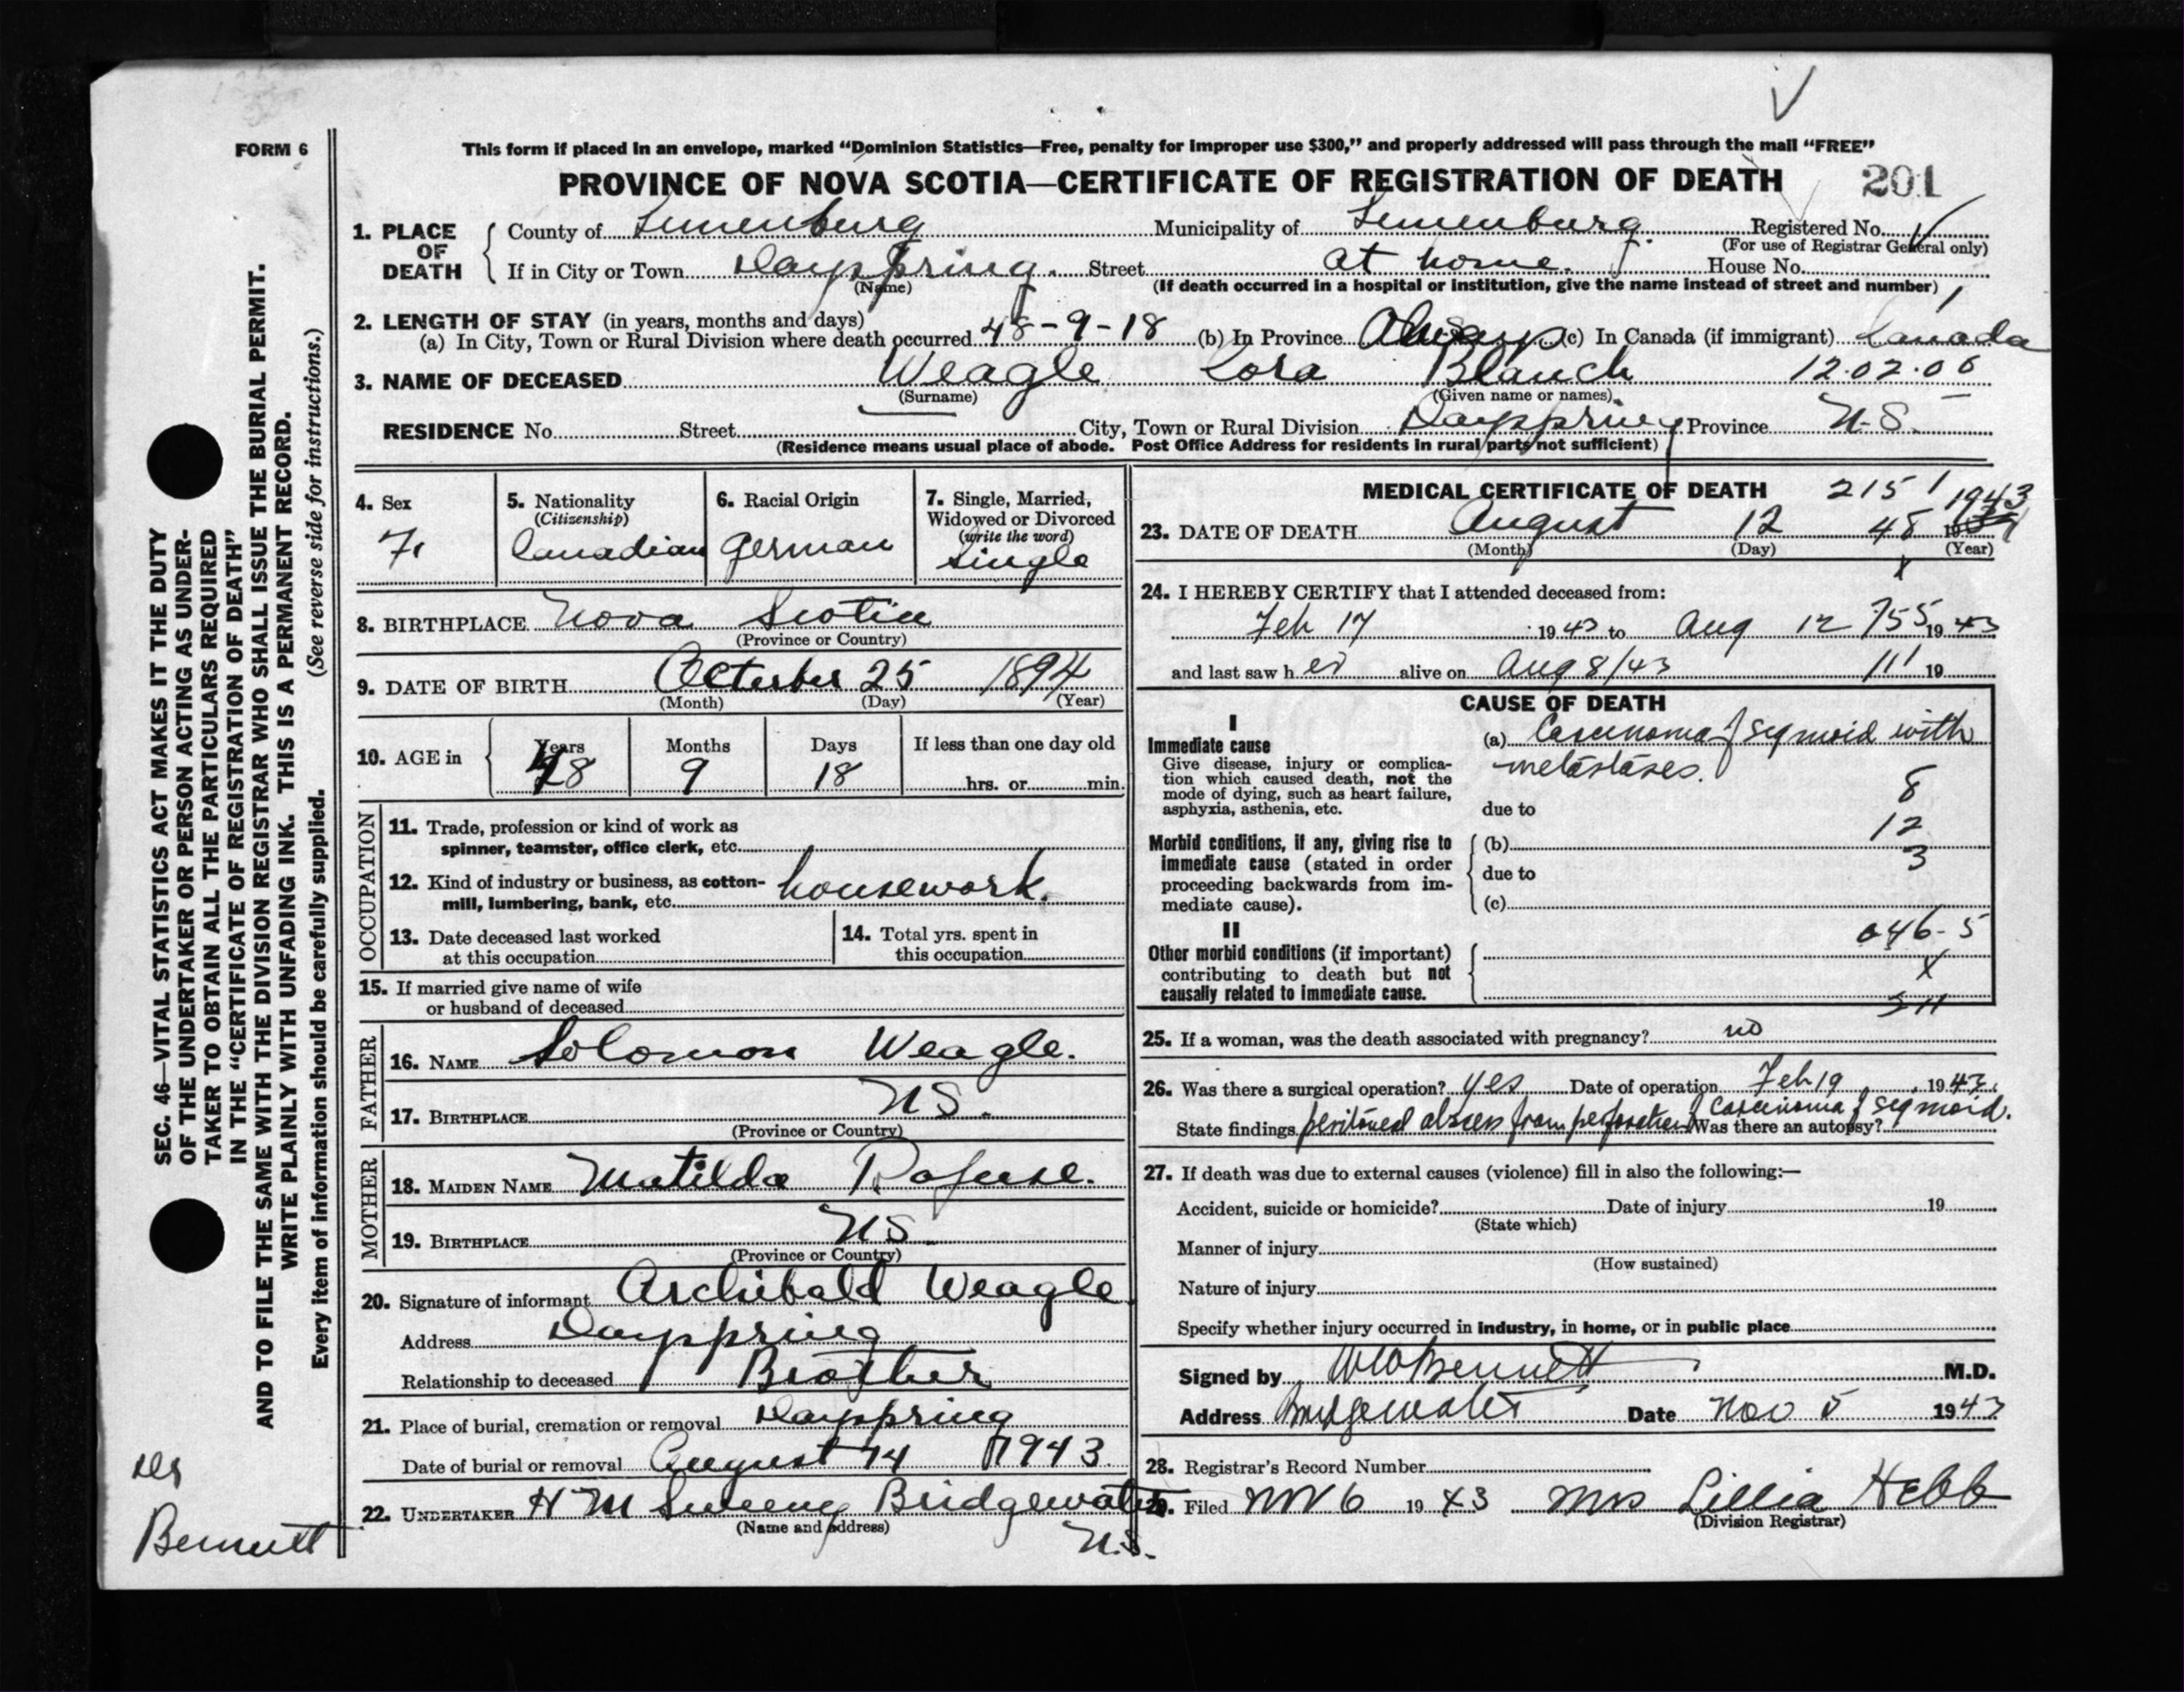 FORM 6
This form if placed in an envelope, marked "Dominion Statistics—Free, penalty for improper use $300," and properly addressed will pass through the mail "FREE"
PROVINCE OF NOVA SCOTIA—CERTIFICATE OF REGISTRATION OF DEATH 201
1. PLACE OF DEATH
County of Lunenburg Municipality of Lunenburg. Registered No.
(For use of Registrar General only)
If in City or Town Dayspring. Street at home. House No.
(Name) (If death occurred in a hospital or institution, give the name instead of street and number)
2. LENGTH OF STAY (in years, months and days)
(a) In City, Town or Rural Division where death occurred 48-9-18 (b) In Province Always (c) In Canada (if immigrant) Canada
3. NAME OF DECEASED Weagle Lora Blanch 12.02.06
(Surname) (Given name or names)
RESIDENCE No. Street City, Town or Rural Division Dayspring Province N.S.
(Residence means usual place of abode. Post Office Address for residents in rural parts not sufficient)
4. Sex
F.
5. Nationality
(Citizenship)
Canadian
6. Racial Origin
German
7. Single, Married, Widowed or Divorced
(write the word)
Single
8. BIRTHPLACE Nova Scotia
(Province or Country)
9. DATE OF BIRTH October 25 1894
(Month) (Day) (Year)
10. AGE in
Years Months Days If less than one day old
48 9 18 hrs. or min.
OCCUPATION
11. Trade, profession or kind of work as
spinner, teamster, office clerk, etc.
12. Kind of industry or business, as cotton-
mill, lumbering, bank, etc. housework.
13. Date deceased last worked
at this occupation
14. Total yrs. spent in
this occupation
15. If married give name of wife
or husband of deceased
FATHER
16. NAME Solomon Weagle.
17. BIRTHPLACE NS.
(Province or Country)
MOTHER
18. MAIDEN NAME Matilda Rafuse.
19. BIRTHPLACE NS.
(Province or Country)
20. Signature of informant Archibald Weagle
Address Dayspring
Relationship to deceased Brother
21. Place of burial, cremation or removal Dayspring
Date of burial or removal August 14 1943.
22. UNDERTAKER H M Sweeny Bridgewater
(Name and address) N.S.
MEDICAL CERTIFICATE OF DEATH 215 1
23. DATE OF DEATH August 12 48 1943
(Month) (Day) (Year)
24. I HEREBY CERTIFY that I attended deceased from:
Feb 17 1943 to Aug 12 755 1943
and last saw h er alive on Aug 8/43 111 19
CAUSE OF DEATH
I
Immediate cause
Give disease, injury or complica-
tion which caused death, not the
mode of dying, such as heart failure,
asphyxia, asthenia, etc.
(a) Carcinoma of sigmoid with
metastases.
8
due to
12
Morbid conditions, if any, giving rise to
immediate cause (stated in order
proceeding backwards from im-
mediate cause).
(b)
3
due to
(c)
II
Other morbid conditions (if important)
contributing to death but not
causally related to immediate cause.
046-5
X
25. If a woman, was the death associated with pregnancy? no
26. Was there a surgical operation? yes Date of operation Feb 19 1943.
State findings peritoneal abscess from perforation of carcinoma of sigmoid. Was there an autopsy?
27. If death was due to external causes (violence) fill in also the following:—
Accident, suicide or homicide? Date of injury 19
(State which)
Manner of injury
(How sustained)
Nature of injury
Specify whether injury occurred in industry, in home, or in public place
Signed by W Bennett M.D.
Address Bridgewater Date Nov 5 1943
28. Registrar's Record Number
29. Filed Nov 6 1943 Mrs Lillia Hebb
(Division Registrar)
SEC. 46—VITAL STATISTICS ACT MAKES IT THE DUTY
OF THE UNDERTAKER OR PERSON ACTING AS UNDER-
TAKER TO OBTAIN ALL THE PARTICULARS REQUIRED
IN THE "CERTIFICATE OF REGISTRATION OF DEATH"
AND TO FILE THE SAME WITH THE DIVISION REGISTRAR WHO SHALL ISSUE THE BURIAL PERMIT.
WRITE PLAINLY WITH UNFADING INK. THIS IS A PERMANENT RECORD.
Every item of information should be carefully supplied. (See reverse side for instructions.)
Dr
Bennett